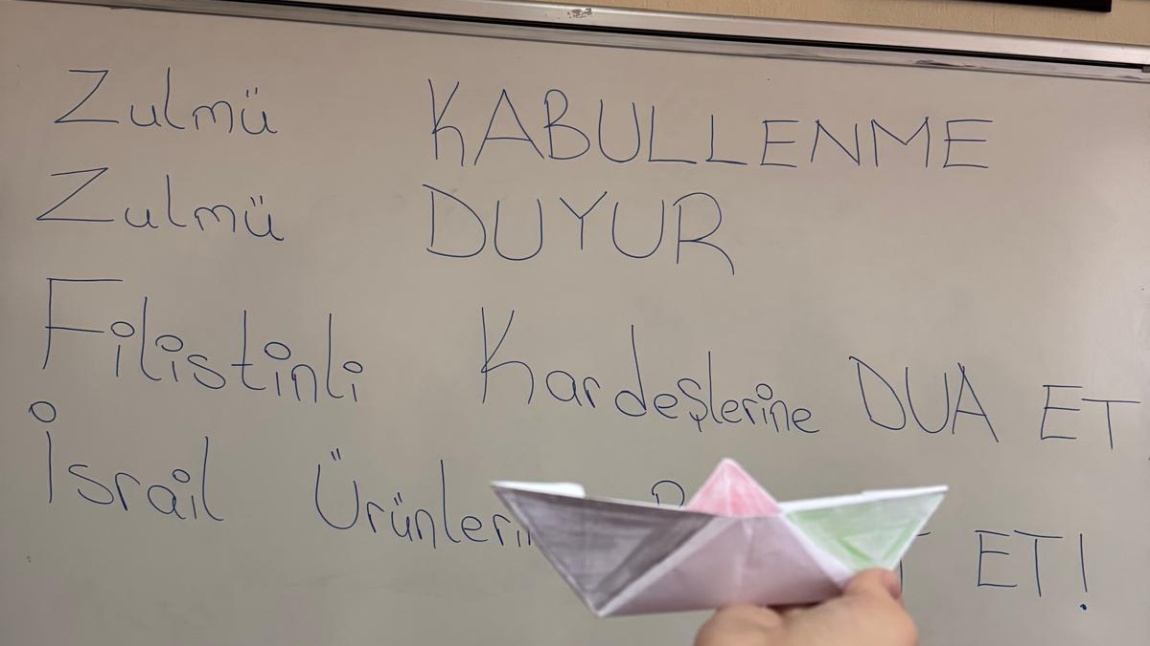 Zulmü KABULLENME
Zulmü DUYUR
Filistinli Kardeşlerine DUA ET
İsrail ET!